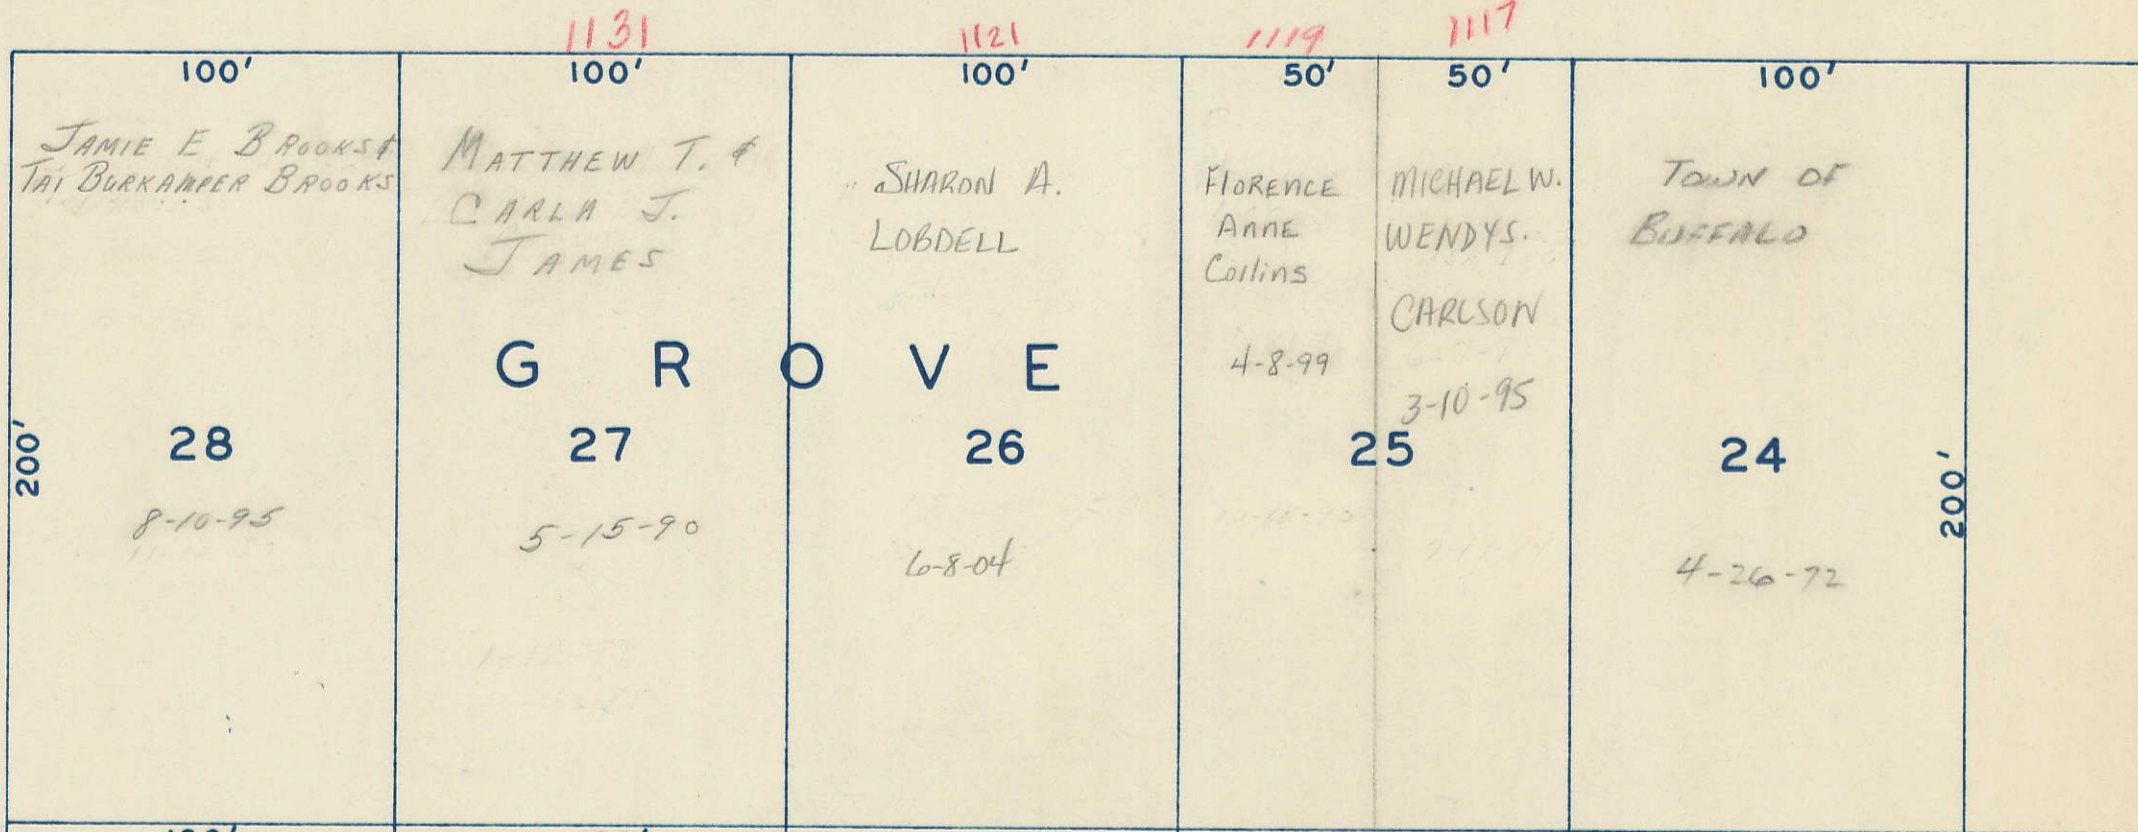 1131
1121
1119
1117
100'
100'
100'
50'
50'
100'
JAMIE E BROOKS &
TAI BURKAMPER BROOKS
MATTHEW T. &
CARLA J.
JAMES
SHARON A.
LOBDELL
FLORENCE
ANNE
Collins
4-8-99
MICHAEL W.
WENDY S.
CARLSON
3-10-95
TOWN OF
BUFFALO
GROVE
200'
28
27
26
25
24
200'
8-10-95
5-15-90
6-8-04
4-26-72